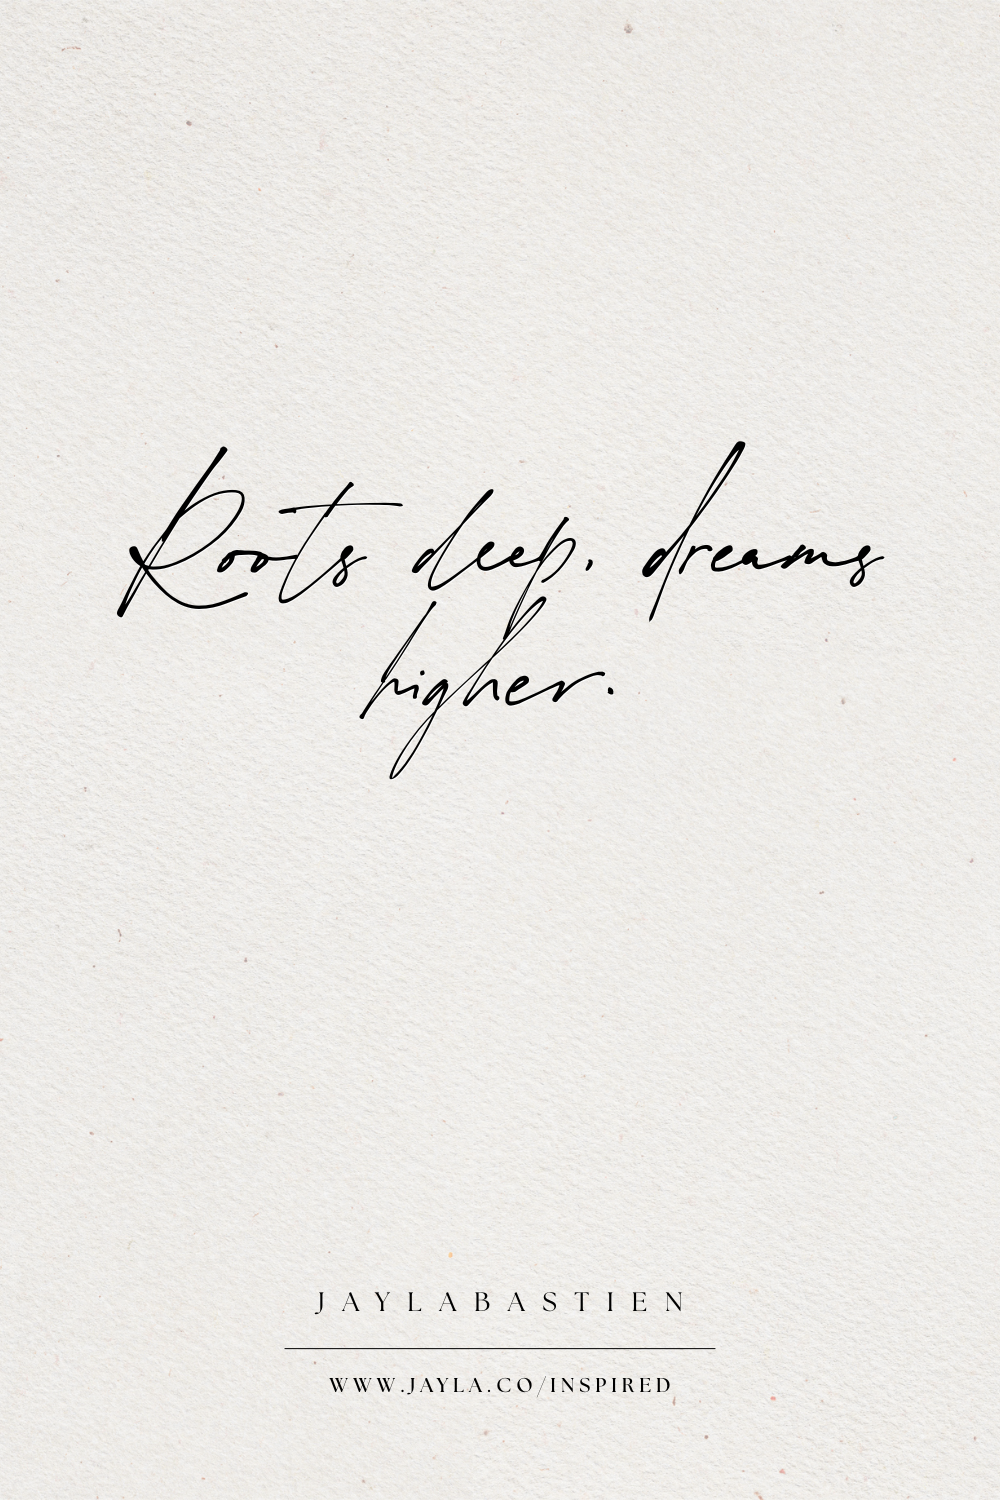 Roots deep, dreams
higher.
JAYLABASTIEN
WWW.JAYLA.CO/INSPIRED